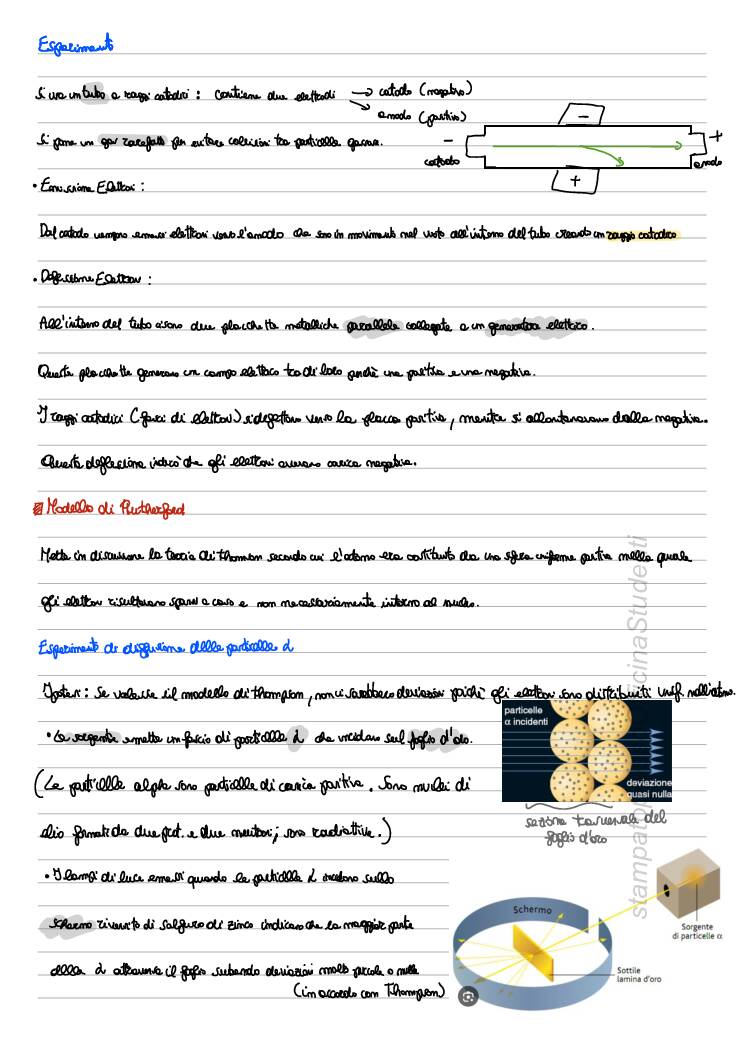 Esperimento
Si usa un tubo a raggi catodici : contiene due elettrodi → catodo (negativo)
→ anodo (positivo)
Si pone un gas rarefatto per evitare collisioni tra particelle gassose.
−
−
+
catodo
anodo
+
• Emissione Elettroni :
Dal catodo vengono emessi elettroni verso l'anodo che sono in movimento nel vuoto all'interno del tubo creando un raggio catodico
• Deflessione Elettroni :
All'interno del tubo ci sono due placchette metalliche parallele collegate a un generatore elettrico.
Queste placchette generano un campo elettrico tra di loro perchè una positiva e una negativa.
I raggi catodici (fasci di elettroni) si deflettono verso la placca positiva, mentre si allontanavano dalla negativa.
Questa deflessione indicò che gli elettroni avevano carica negativa.
Modello di Rutherford
Mette in discussione la teoria di Thomson secondo cui l'atomo era costituito da una sfera uniforme positiva nella quale
gli elettroni risultavano sparsi a caso e non necessariamente intorno al nucleo.
Esperimento di diffusione delle particelle α
Ipotesi : Se valesse il modello di Thompson, non ci sarebbero deviazioni poichè gli elettroni sono distribuiti unif. nell'atomo.
• La sorgente emette un fascio di particelle α che incidono sul foglio d'oro.
(Le particelle alpha sono particelle di carica positiva. Sono nuclei di
elio formati da due prot. e due neutroni; sono radioattive.)
particelle
α incidenti
deviazione
quasi nulla
sezione trasversale del
foglio d'oro
• I lampi di luce emessi quando le particelle α incidono sullo
schermo rivestito di solfuro di zinco indicano che la maggior parte
delle α attraversa il foglio subendo deviazioni molto piccole o nulle
(in accordo con Thompson)
Schermo
Sorgente
di particelle α
Sottile
lamina d'oro